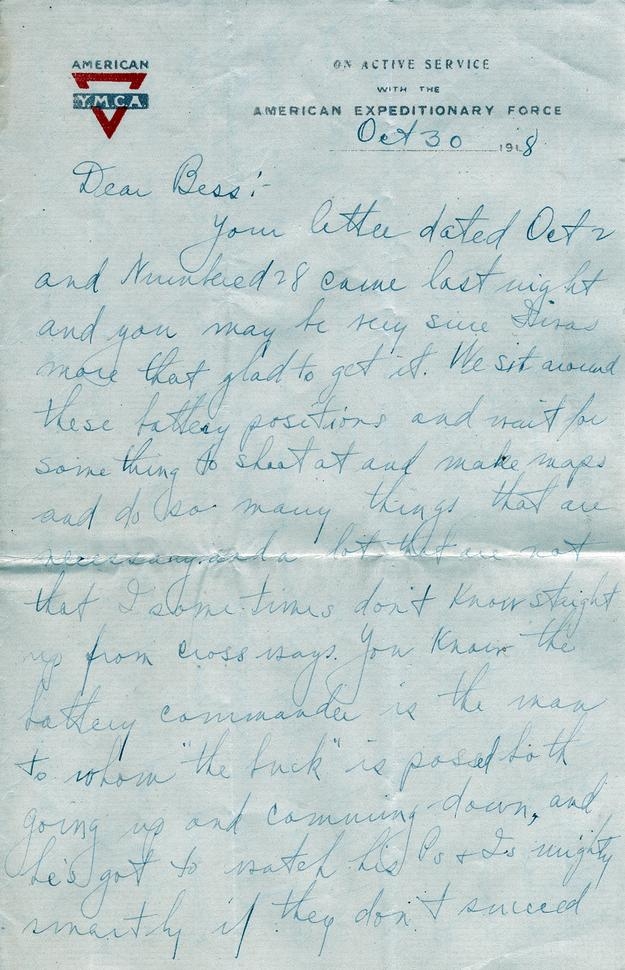 AMERICAN
Y.M.C.A.
ON ACTIVE SERVICE
WITH THE
AMERICAN EXPEDITIONARY FORCE
Oct 30 1918
Dear Bess:-
Your letter dated Oct 2
and Numbered 28 came last night
and you may be very sure I was
more that glad to get it. We sit around
these battery positions and wait for
something to shoot at and make maps
and do so many things that are
necessary and a lot that are not
that I sometimes don't know staight
up from crossways. You know the
battery commander is the man
to whom "the buck" is passed both
going up and comming down, and
he's got to watch his Ps & Is mighty
smartly if they don't succeed